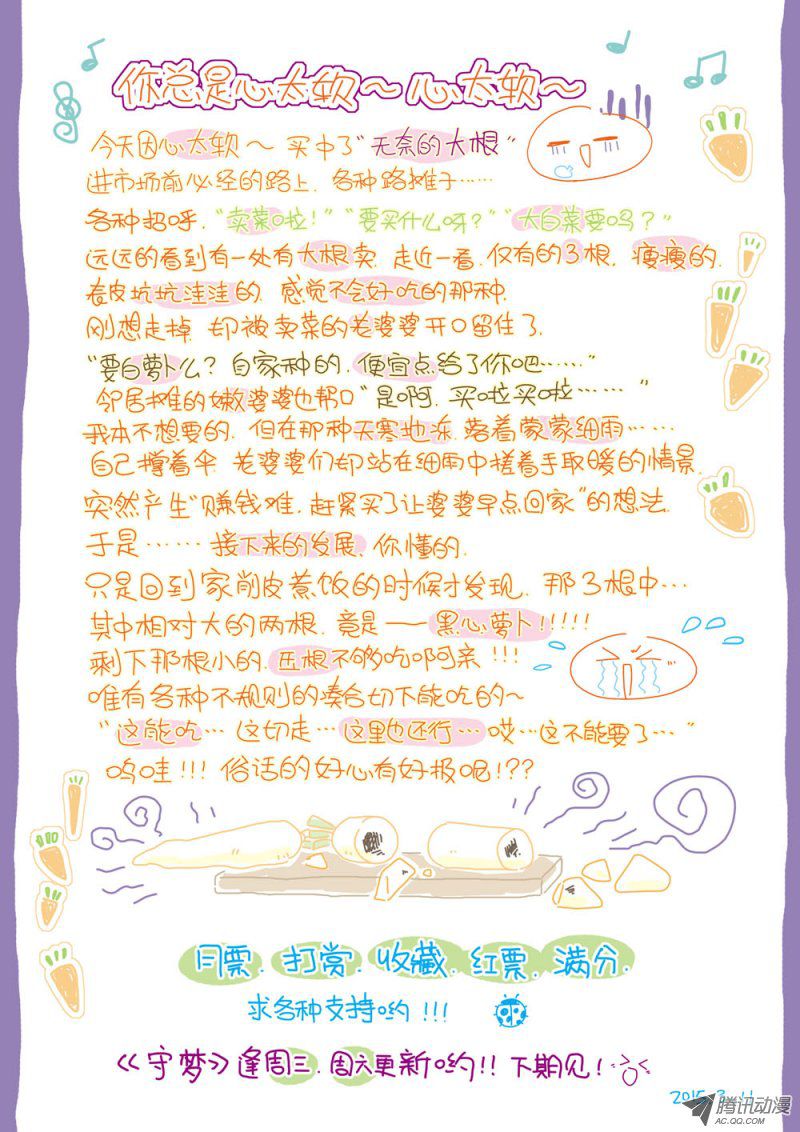 你总是心太软～心太软～
今天因心太软～ 买中了“无奈的大根”
进市场前必经的路上.各种路摊子……
各种招呼.“卖菜啦！”“要买什么呀？”“大白菜要吗？”
远远的看到有一处有大根卖.走近一看.仅有的3根.瘦瘦的.
表皮坑坑洼洼的.感觉不会好吃的那种.
刚想走掉.却被卖菜的老婆婆开口留住了.
“要白萝卜么？自家种的.便宜点给了你吧……”
邻居摊的嫩婆婆也帮口“是啊.买啦买啦…… ”
我本不想要的.但在那种天寒地冻.落着蒙蒙细雨……
自己撑着伞.老婆婆们却站在细雨中搓着手取暖的情景.
突然产生“赚钱难.赶紧买了让婆婆早点回家”的想法.
于是…… 接下来的发展.你懂的.
只是回到家削皮煮饭的时候才发现.那3根中…
其中相对大的两根.竟是——黑心萝卜!!!!!
剩下那根小的.压根不够吃啊亲!!!
唯有各种不规则的凑合切下能吃的～
“这能吃…这切走…这里也还行…哎…这不能要了…”
呜哇!!!俗话的好心有好报呢!??
月票.打赏.收藏.红票.满分.
求各种支持哟!!!
《守梦》逢周三.周六更新哟!!下期见!
2015.3.11
腾讯动漫
AC.QQ.COM